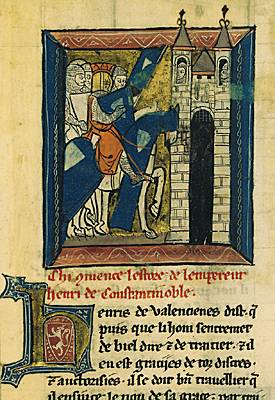 Chi ꝯmence lestore de lempereur
henri de Constantinoble.
Henris de Valencienes dist. q̄
puis que li hom sentremet
de biel dire ⁊ de traitier. ⁊ il
en est gracijes de toz discres.
⁊ auctorisies. il se doit bn̄ trauellier q̄
le non de sa grace. par